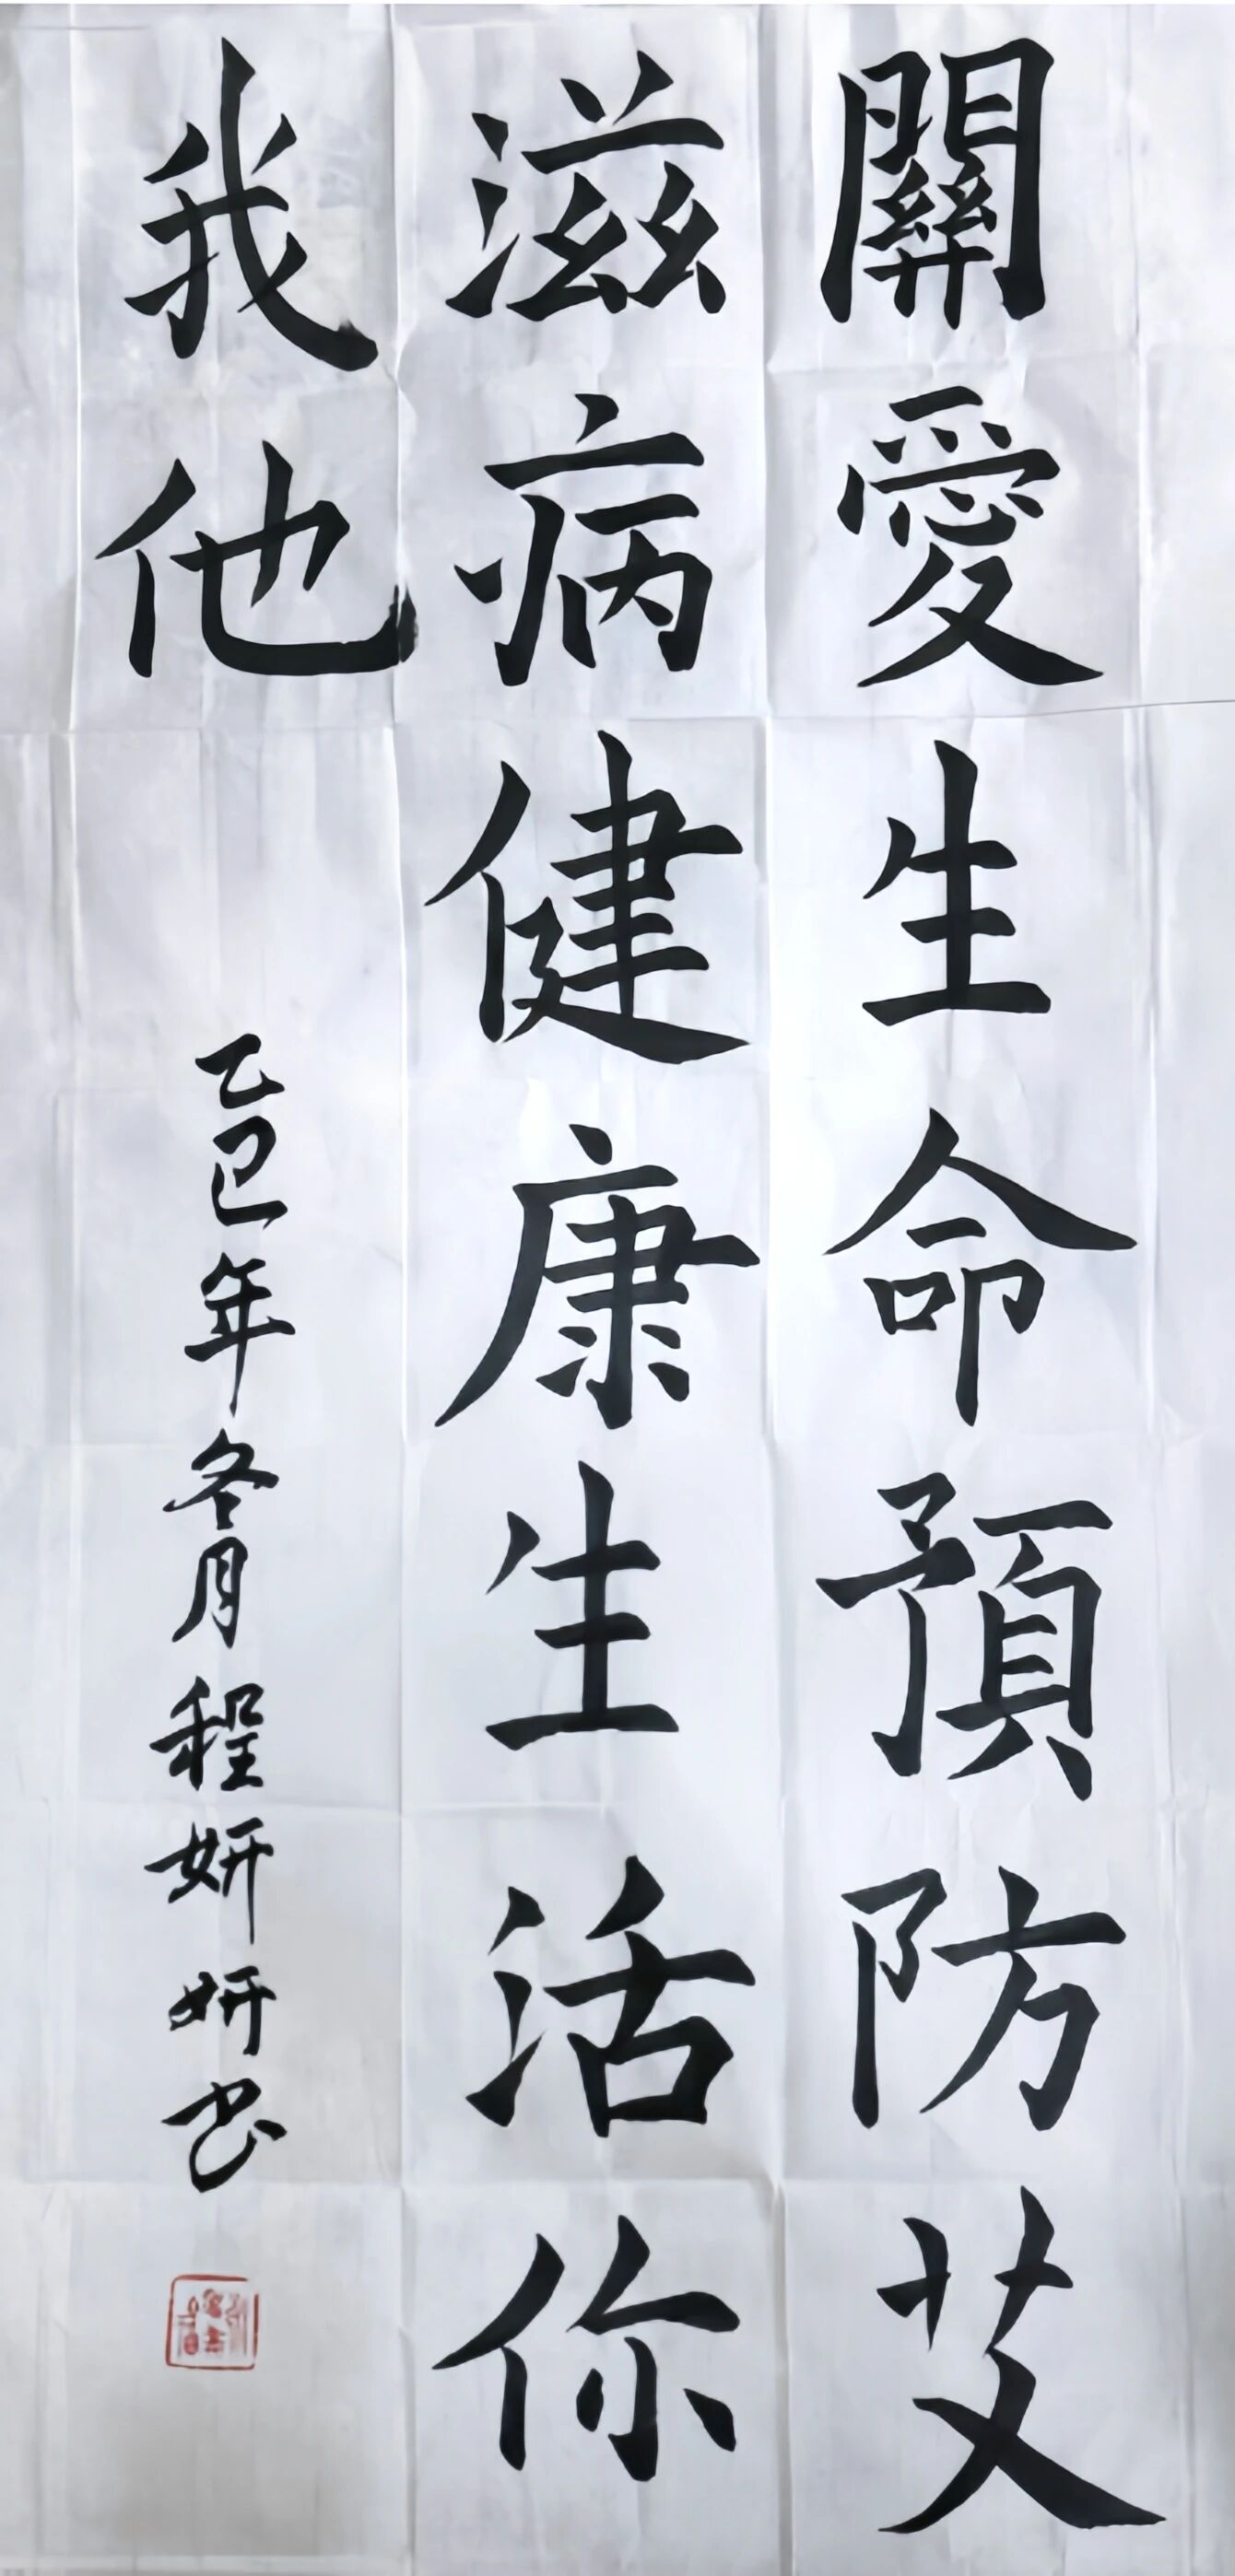 關愛生命預防艾
滋病健康生活你
我他
乙巳年冬月程妍妍书